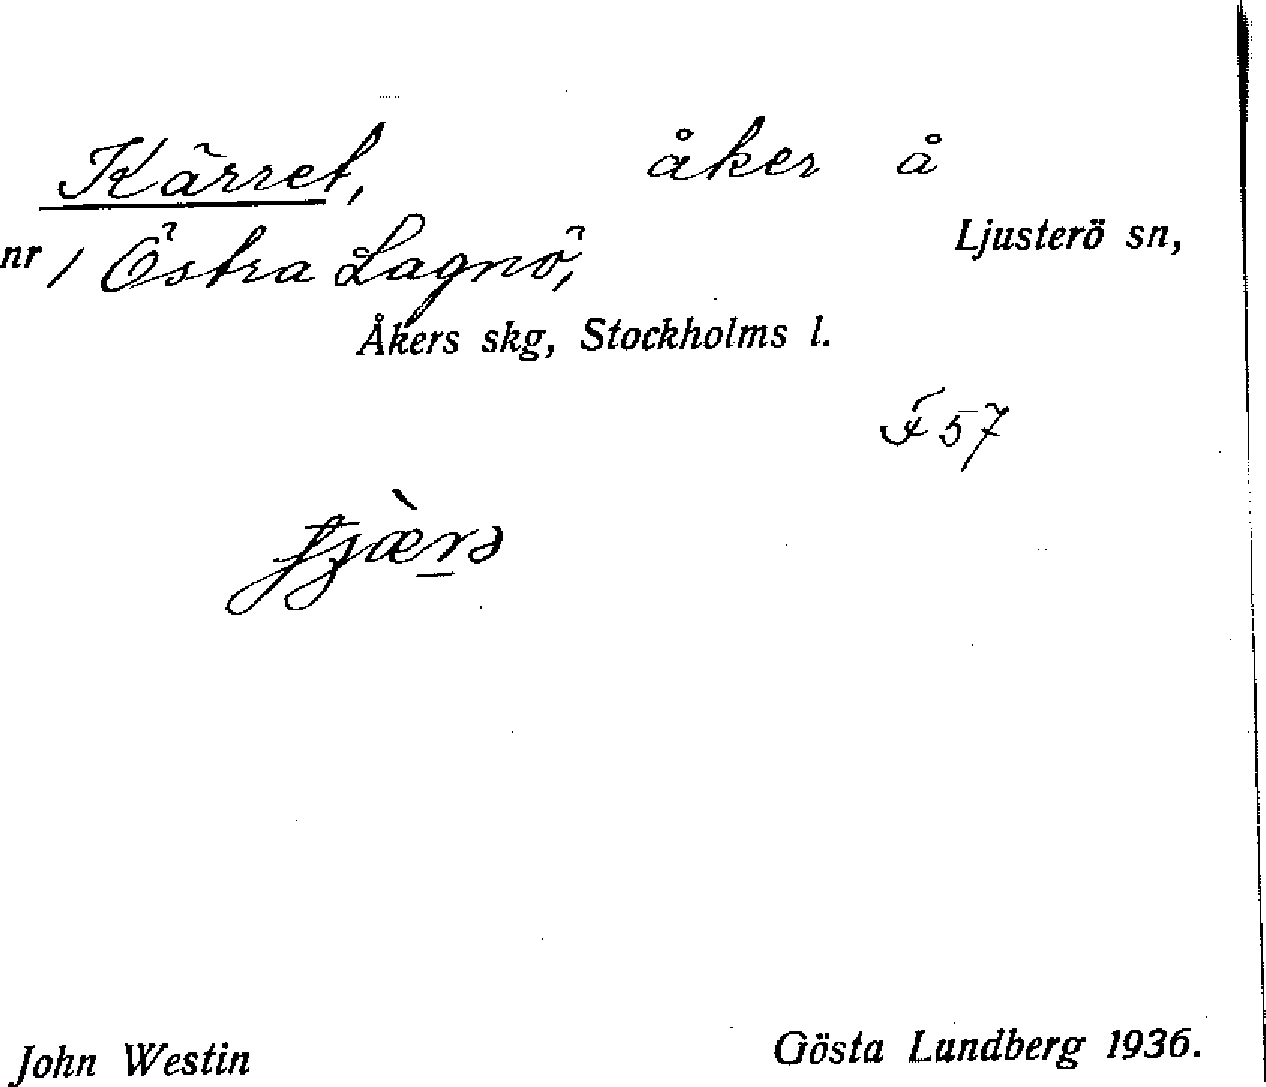 Kärret, åker å
nr 1 Östra Lagnö, Ljusterö sn,
Åkers skg, Stockholms l.
F 57
John Westin Gösta Lundberg 1936.